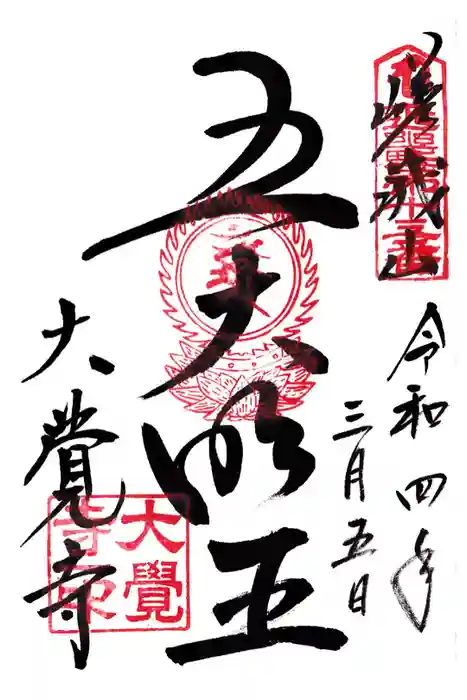 嵯峨山
令和四年
三月五日
五大明王
大覺寺
大覺
寺印